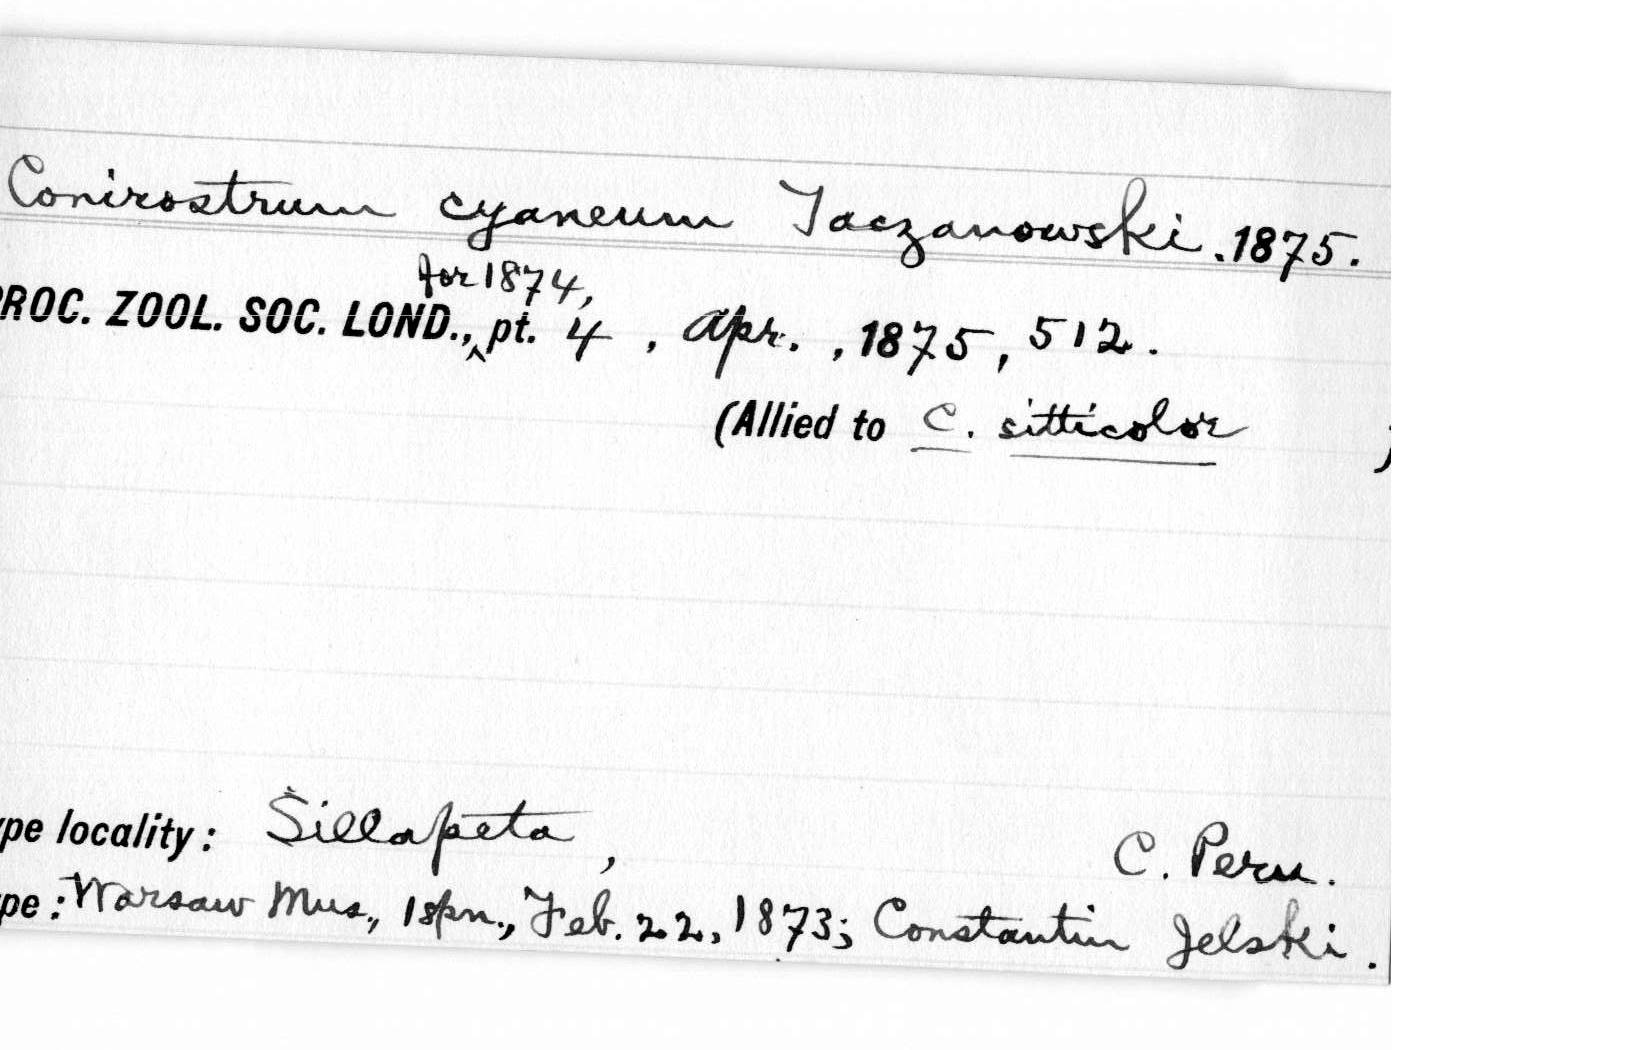 Conirostrum cyaneum Taczanowski .1875.
for 1874,
ROC. ZOOL. SOC. LOND., ^ pt. 4 , Apr. , 1875, 512.
(Allied to C. sitticolor )
ype locality: Sillapata, C. Peru.
ype: Warsaw Mus., 1 spn., Feb. 22, 1873; Constantin Jelski.